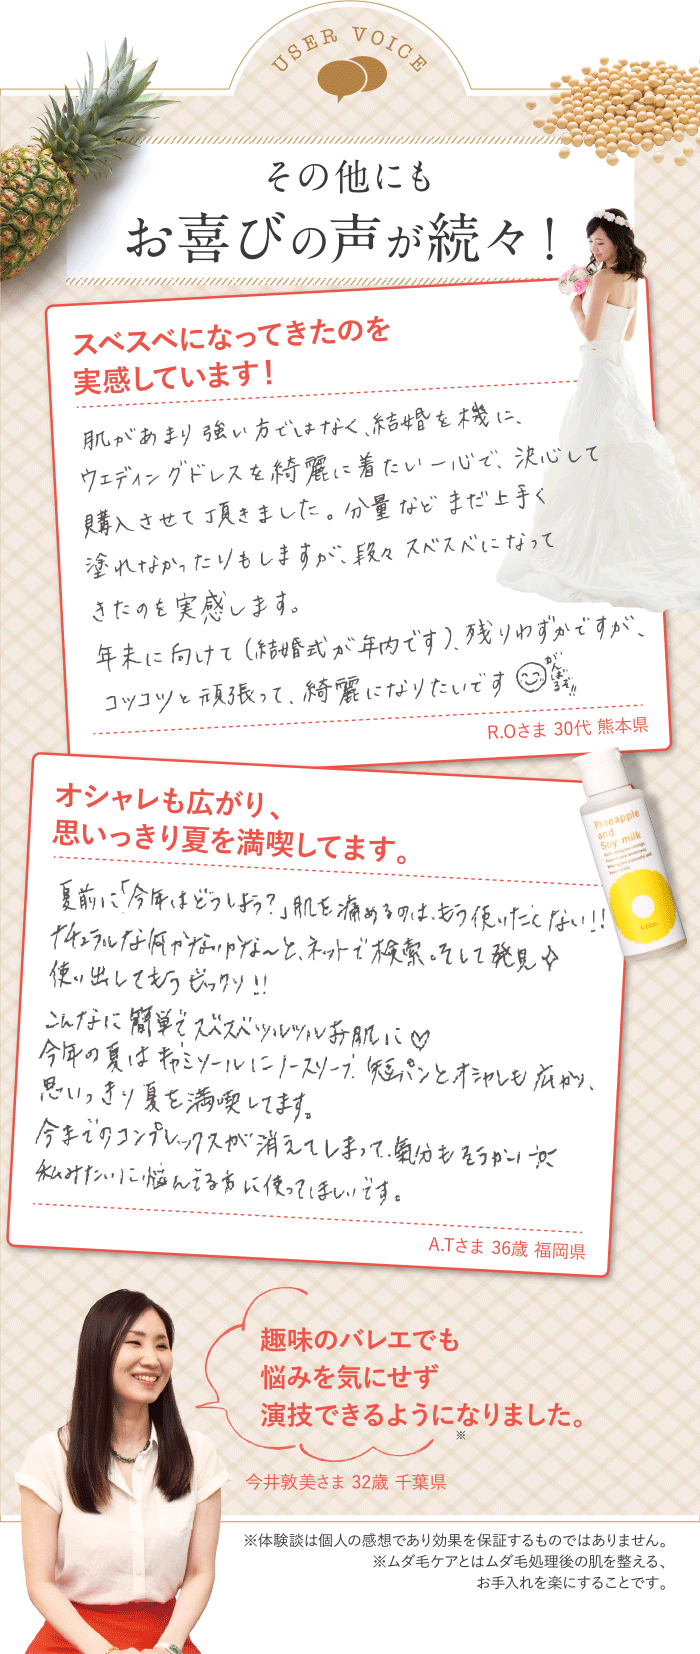 USER VOICE
その他にも
お喜びの声が続々！
スベスベになってきたのを
実感しています！
肌があまり強い方ではなく、結婚を機に、
ウエディングドレスを綺麗に着たい一心で、決心して
購入させて頂きました。分量などまだ上手く
塗れなかったりもしますが、段々スベスベになって
きたのを実感します。
年末に向けて(結婚式が年内です)、残りわずかですが、
コツコツと頑張って、綺麗になりたいです
がんばるぞ!!
R.Oさま 30代 熊本県
オシャレも広がり、
思いっきり夏を満喫してます。
Pineapple
and
Soy milk
lotion
夏前に「今年はどうしよう？」肌を痛めるのは、もう使いたくない!!
ナチュラルな何かないかな〜と、ネットで検索。そして発見
使い出してもうビックリ!!
こんなに簡単でスベスベツルツルお肌に♡
今年の夏はキャミソールにノースリーブ 短パンとオシャレも広がり、
思いっきり夏を満喫してます。
今までのコンプレックスが消えてしまって、氣分もそうかい
私みたいに悩んでる方に使ってほしいです。
A.Tさま 36歳 福岡県
趣味のバレエでも
悩みを気にせず
演技できるようになりました。
※
今井敦美さま 32歳 千葉県
※体験談は個人の感想であり効果を保証するものではありません。
※ムダ毛ケアとはムダ毛処理後の肌を整える、
お手入れを楽にすることです。